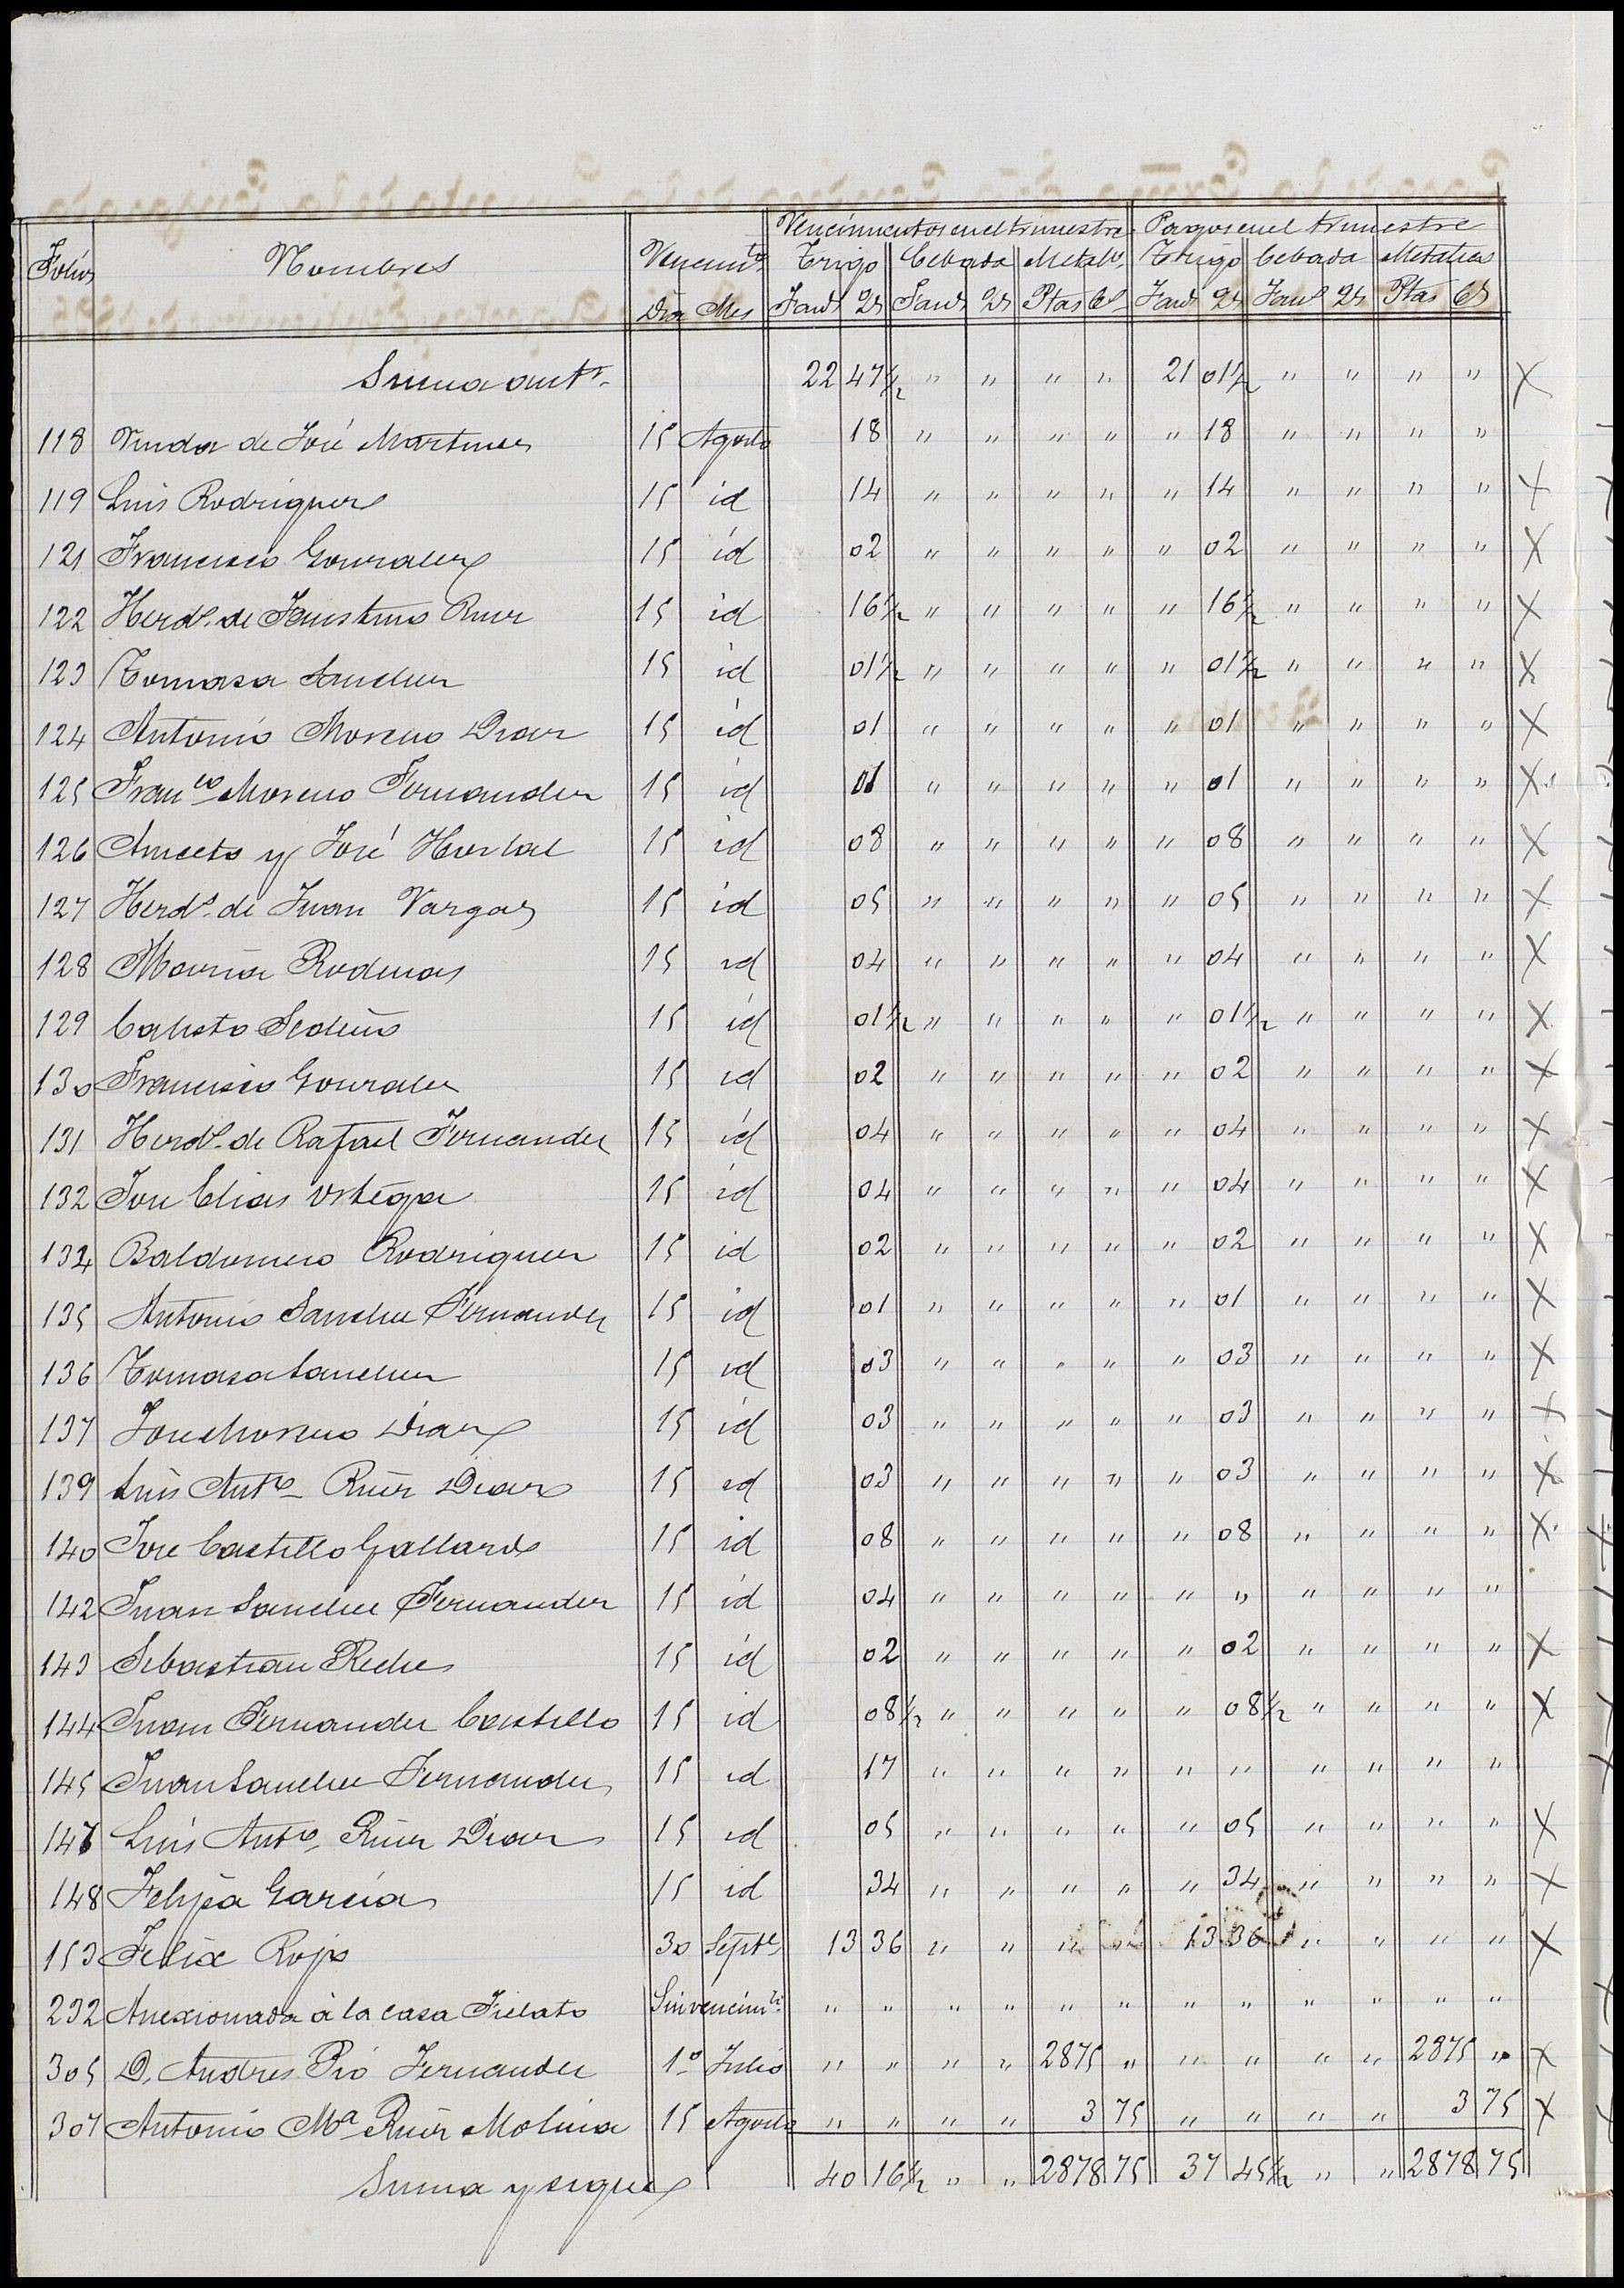 Folios Nombres Vencimto Vencimientos en el trimestre Pagos en el trimestre
Trigo Cebada Metalco Trigo Cebada Metalico
Dia Mes Fans Qs Fans Qs Ptas Cs Fans Qs Fans Qs Ptas Cs
Suma antr 22 47½ " " " " 21 01½ " " " " X
118 Viuda de José Martinez 15 Agosto 18 " " " " " 18 " " " "
119 Luis Rodriguez 15 id 14 " " " " " 14 " " " " X
121 Francisco Gonzalez 15 id 02 " " " " " 02 " " " " X
122 Herds de Faustino Ruiz 15 id 16½ " " " " " 16½ " " " " X
123 Tomasa Sanchez 15 id 01½ " " " " " 01½ " " " " X
124 Antonio Moreno Diaz 15 id 01 " " " " " 01 " " " " X
125 Franco Moreno Fernandez 15 id 01 " " " " " 01 " " " " X
126 Aniceto y José 15 id 08 " " " " " 08 " " " " X
127 Herds de Juan Vargas 15 id 05 " " " " " 05 " " " " X
128 Maria Rodenas 15 id 04 " " " " " 04 " " " " X
129 Calisto Sedeño 15 id 01½ " " " " " 01½ " " " " X
130 Francisco Gonzalez 15 id 02 " " " " " 02 " " " " X
131 Herds de Rafael Fernandez 15 id 04 " " " " " 04 " " " " X
132 Jose Elias Ortega 15 id 04 " " " " " 04 " " " " X
134 Baldomero Rodriguez 15 id 02 " " " " " 02 " " " " X
135 Antonio Sanchez Fernandez 15 id 01 " " " " " 01 " " " " X
136 Tomasa Sanchez 15 id 03 " " " " " 03 " " " " X
137 Jose Moreno Diaz 15 id 03 " " " " " 03 " " " " X
139 Luis Anto Ruiz Diaz 15 id 03 " " " " " 03 " " " " X
140 Jose Castillo Gallardo 15 id 08 " " " " " 08 " " " " X
142 Juan Sanchez Fernandez 15 id 04 " " " " " " " " " "
143 Sebastian Reche 15 id 02 " " " " " 02 " " " " X
144 Juan Fernandez Castillo 15 id 08½ " " " " " 08½ " " " " X
145 Juan Sanchez Fernandez 15 id 17 " " " " " " " " " "
147 Luis Anto Ruiz Diaz 15 id 05 " " " " " 05 " " " " X
148 Felipa Garcia 15 id 34 " " " " " 34 " " " " X
153 Felix Rojo 30 Septe 13 36 " " " " 13 36 " " " " X
292 Anexionada á la casa Fielato Sin vencimto " " " " " " " " " " " "
305 D. Andres Pio Fernandez 1º Julio " " " " 2875 " " " " " 2875 " X
307 Antonio Mª Ruiz Molina 15 Agosto " " " " 3 75 " " " " 3 75 X
Suma y sigue 40 16½ " " 2878 75 37 45½ " " 2878 75